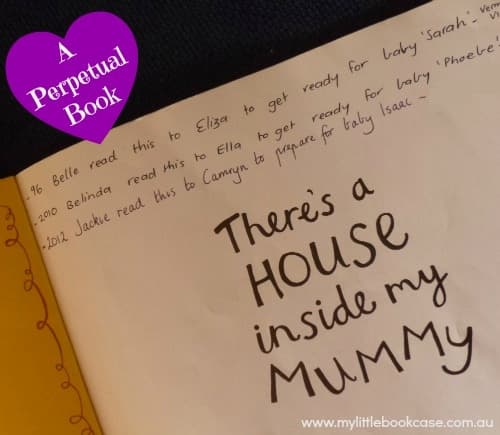 A
Perpetual
Book
- 96 Belle read this to Eliza to get ready for baby 'Sarah' -
- 2010 Belinda read this to Ella to get ready for baby 'Phoebe'
- 2012 Jackie read this to Camryn to prepare for baby Isaac -
There's a
HOUSE
inside my
MUMMY
www.mylittlebookcase.com.au